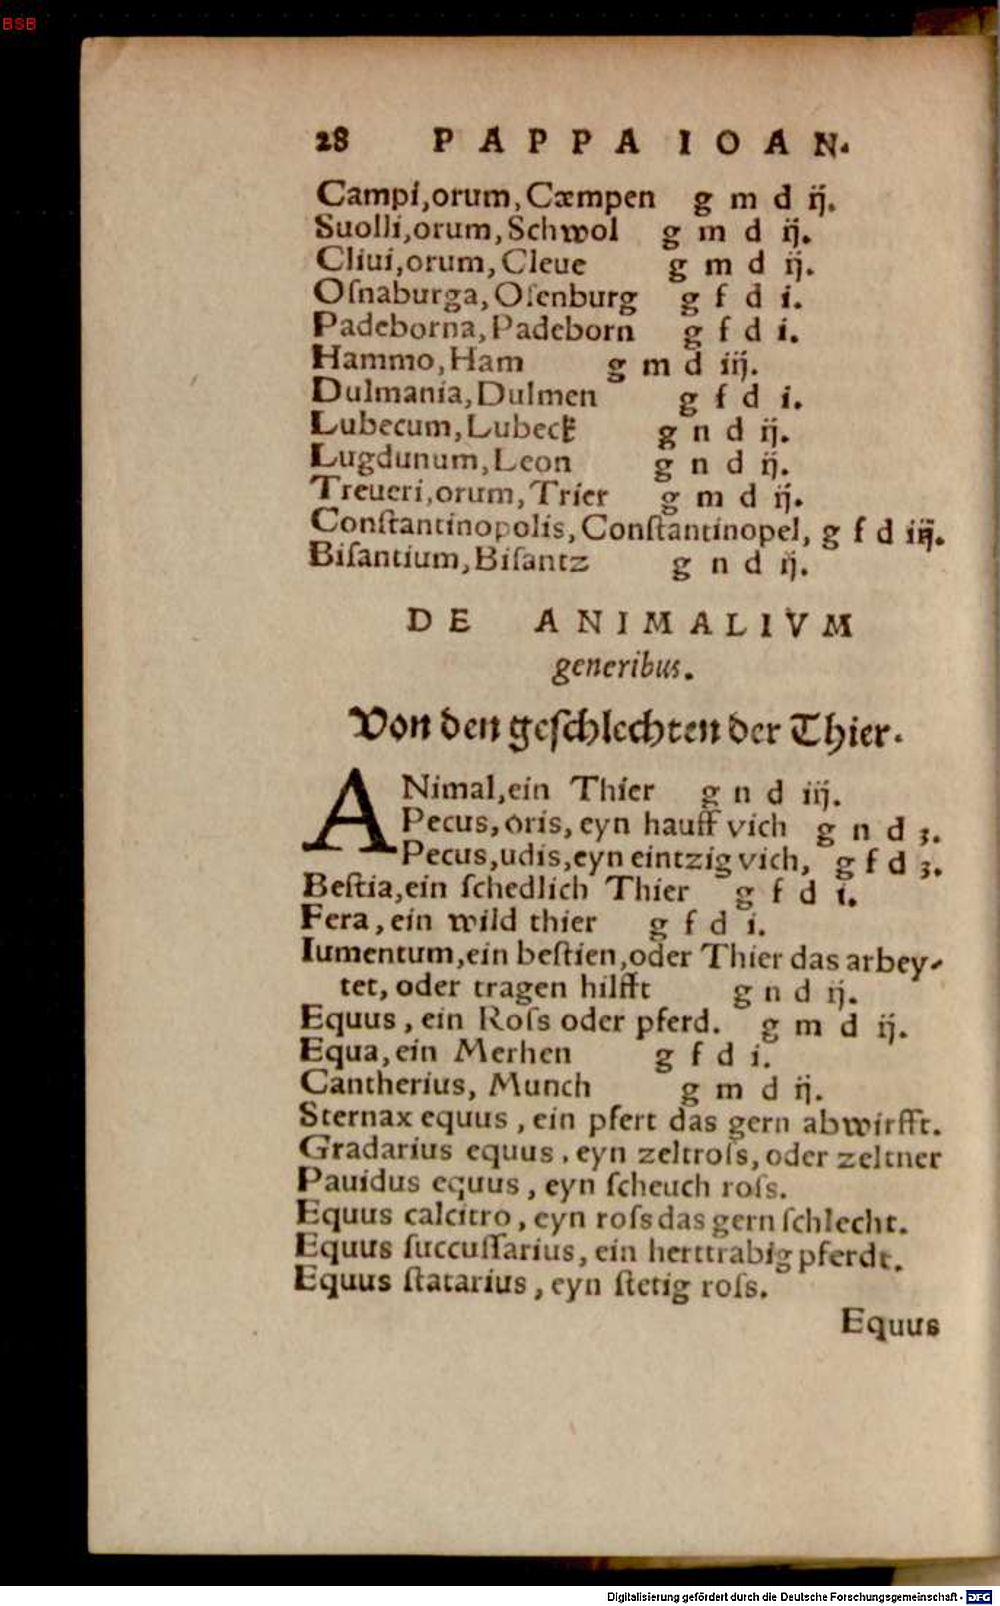 BSB
28 PAPPA IOAN.
Campi,orum, Cæmpen g m d ij.
Suolli,orum, Schwol g m d ij.
Cliui,orum, Cleue g m d ij.
Oſnaburga, Oſenburg g f d i.
Padeborna, Padeborn g f d i.
Hammo, Ham g m d iij.
Dulmania, Dulmen g f d i.
Lubecum, Lubeck g n d ij.
Lugdunum, Leon g n d ij.
Treueri,orum, Trier g m d ij.
Conſtantinopolis, Conſtantinopel, g f d iij.
Biſantium, Biſantz g n d ij.
DE ANIMALIVM
generibus.
Von den geſchlechten der Thier.
ANimal,ein Thier g n d iij.
Pecus, oris, eyn hauff vich g n d 3.
Pecus,udis,eyn eintzig vich, g f d 3.
Beſtia,ein ſchedlich Thier g f d i.
Fera, ein wild thier g f d i.
Iumentum,ein beſtien,oder Thier das arbey-
tet, oder tragen hilfft g n d ij.
Equus, ein Roſs oder pferd. g m d ij.
Equa, ein Merhen g f d i.
Cantherius, Munch g m d ij.
Sternax equus, ein pfert das gern abwirfft.
Gradarius equus, eyn zeltroſs, oder zeltner
Pauidus equus, eyn ſcheuch roſs.
Equus calcitro, eyn roſs das gern ſchlecht.
Equus ſuccuſſarius, ein herttrabig pferdt.
Equus ſtatarius, eyn ſtetig roſs.
Equus
Digitalisierung gefördert durch die Deutsche Forschungsgemeinschaft - DFG